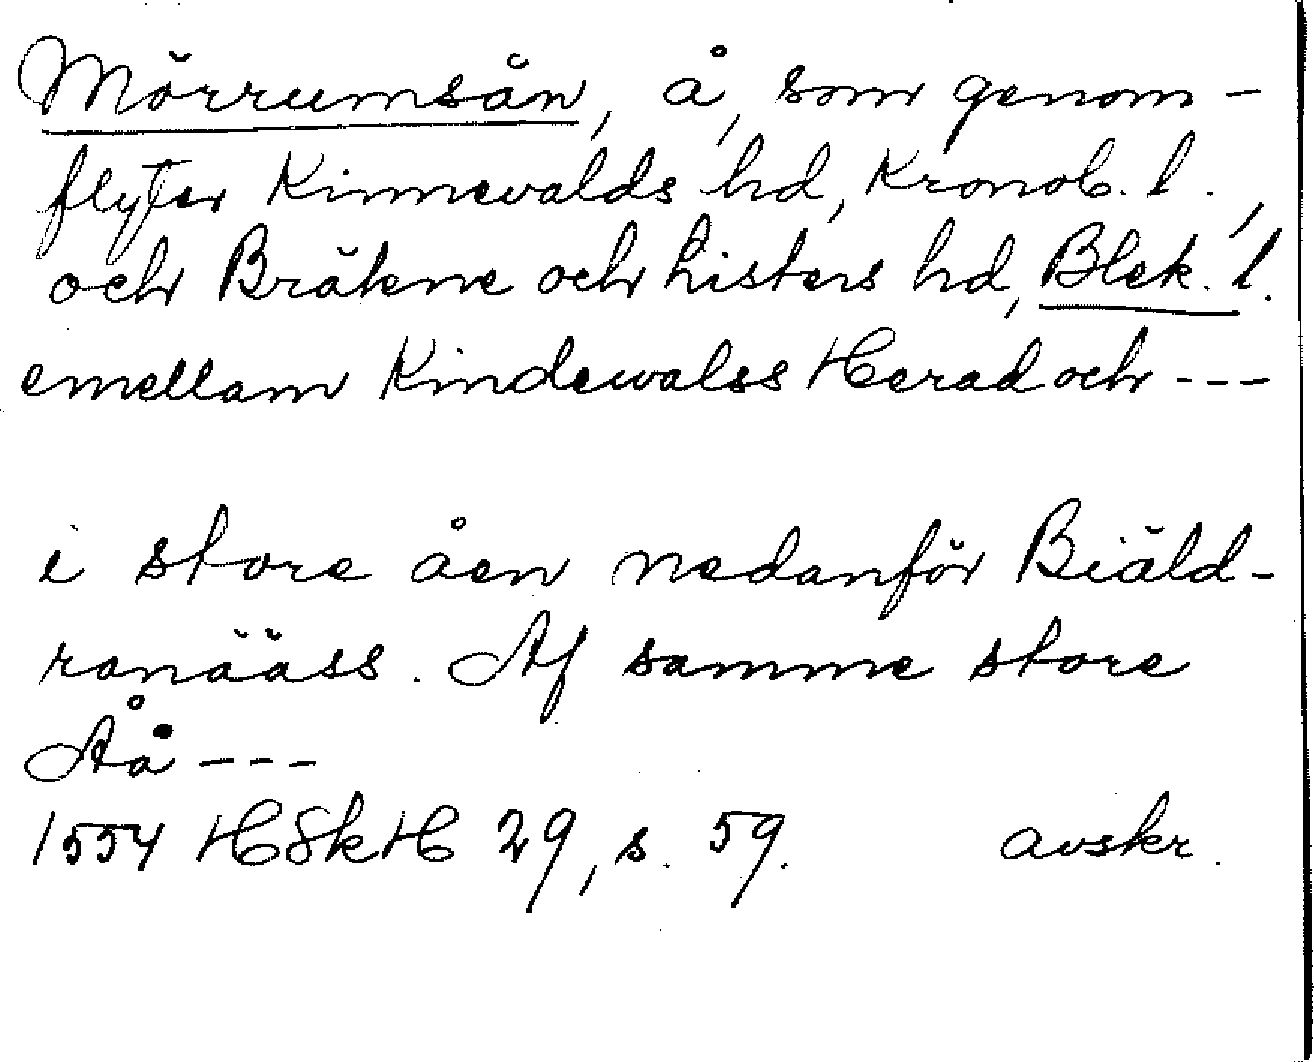 Mörrumsån, å, som genom-
flyter Kinnevalds hd, Kronob. l.,
och Bräkne och Listers hd, Blek. l.
emellam Kindewalss Herad och ---
i store åen nedanför Biäld-
ranääss. Af samme store
Åå ---
1554 HSkH 29, s. 59. avskr.